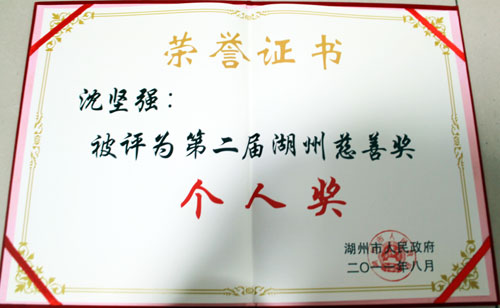 荣誉证书
沈坚强：
被评为第二届湖州慈善奖
个人奖
湖州市人民政府
二〇一三年八月